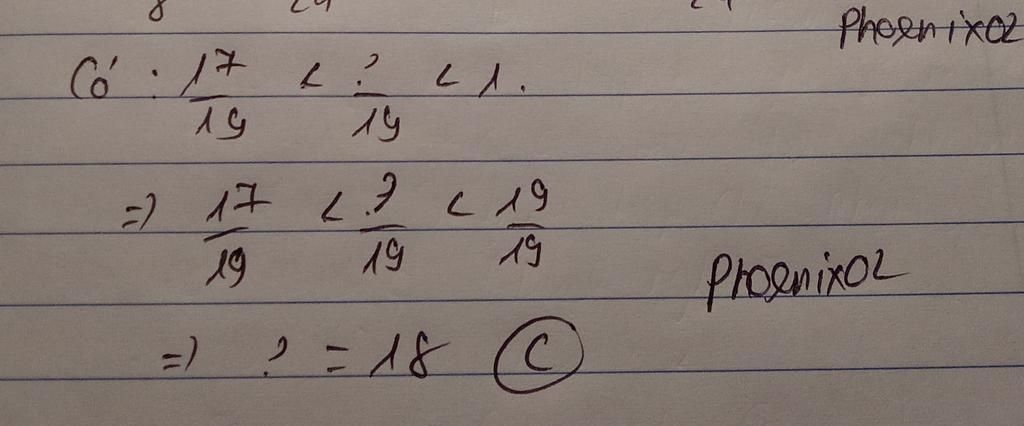 8 24
Phoenix02
Có: 17/19 < ?/19 < 1.
=> 17/19 < ?/19 < 19/19
Phoenix02
=> ? = 18 C